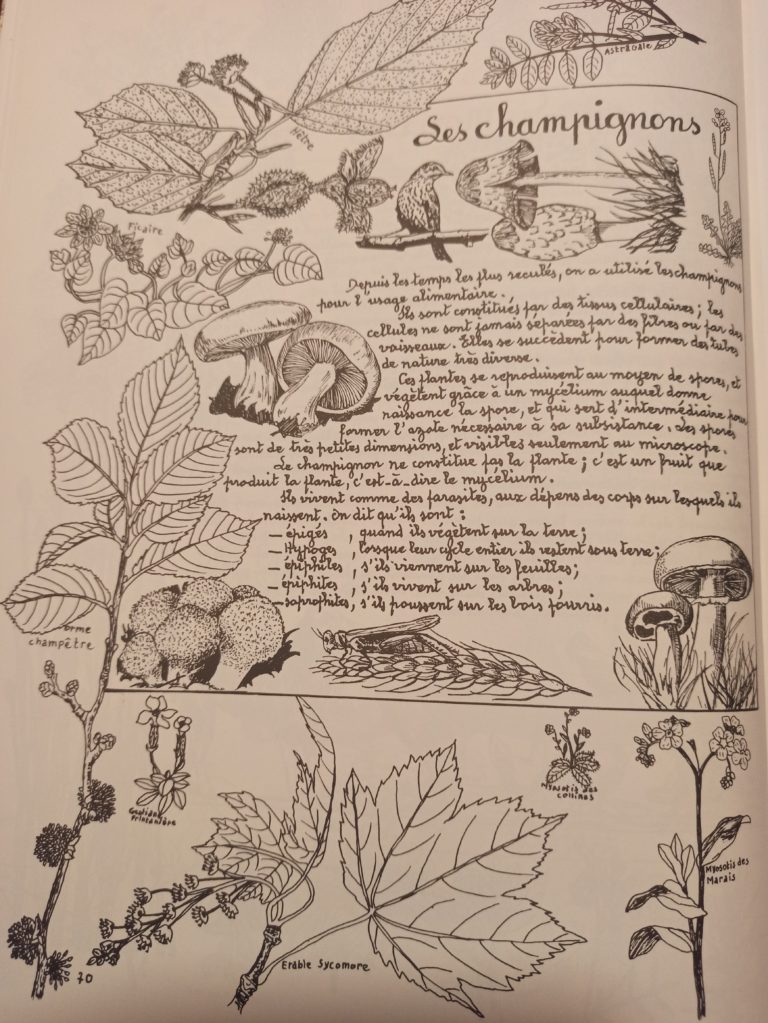 Astragale
Les champignons
Hêtre
Ficaire
Depuis les temps les plus reculés, on a utilisé les champignons
pour l'usage alimentaire.
Ils sont constitués par des tissus cellulaires ; les
cellules ne sont jamais séparées par des fibres ou par des
vaisseaux. Elles se succèdent pour former des tubes
de nature très diverse.
Ces plantes se reproduisent au moyen de spores, et
végètent grâce à un mycélium auquel donne
naissance la spore, et qui sert d'intermédiaire pour
former l'azote nécessaire à sa subsistance. Les spores
sont de très petites dimensions, et visibles seulement au microscope.
Le champignon ne constitue pas la plante ; c'est un fruit que
produit la plante, c'est-à-dire le mycélium.
Ils vivent comme des parasites, aux dépens des corps sur lesquels ils
naissent. On dit qu'ils sont :
_ épigés , quand ils végètent sur la terre ;
_ Hypogés , lorsque leur cycle entier ils restent sous terre ;
_ épiphites , s'ils viennent sur les feuilles ;
_ épiphites , s'ils vivent sur les arbres ;
_ saprophites, s'ils poussent sur les bois pourris.
orme
champêtre
Gentiane
Printanière
Myosotis des
collines
Myosotis des
Marais
Erable Sycomore
70